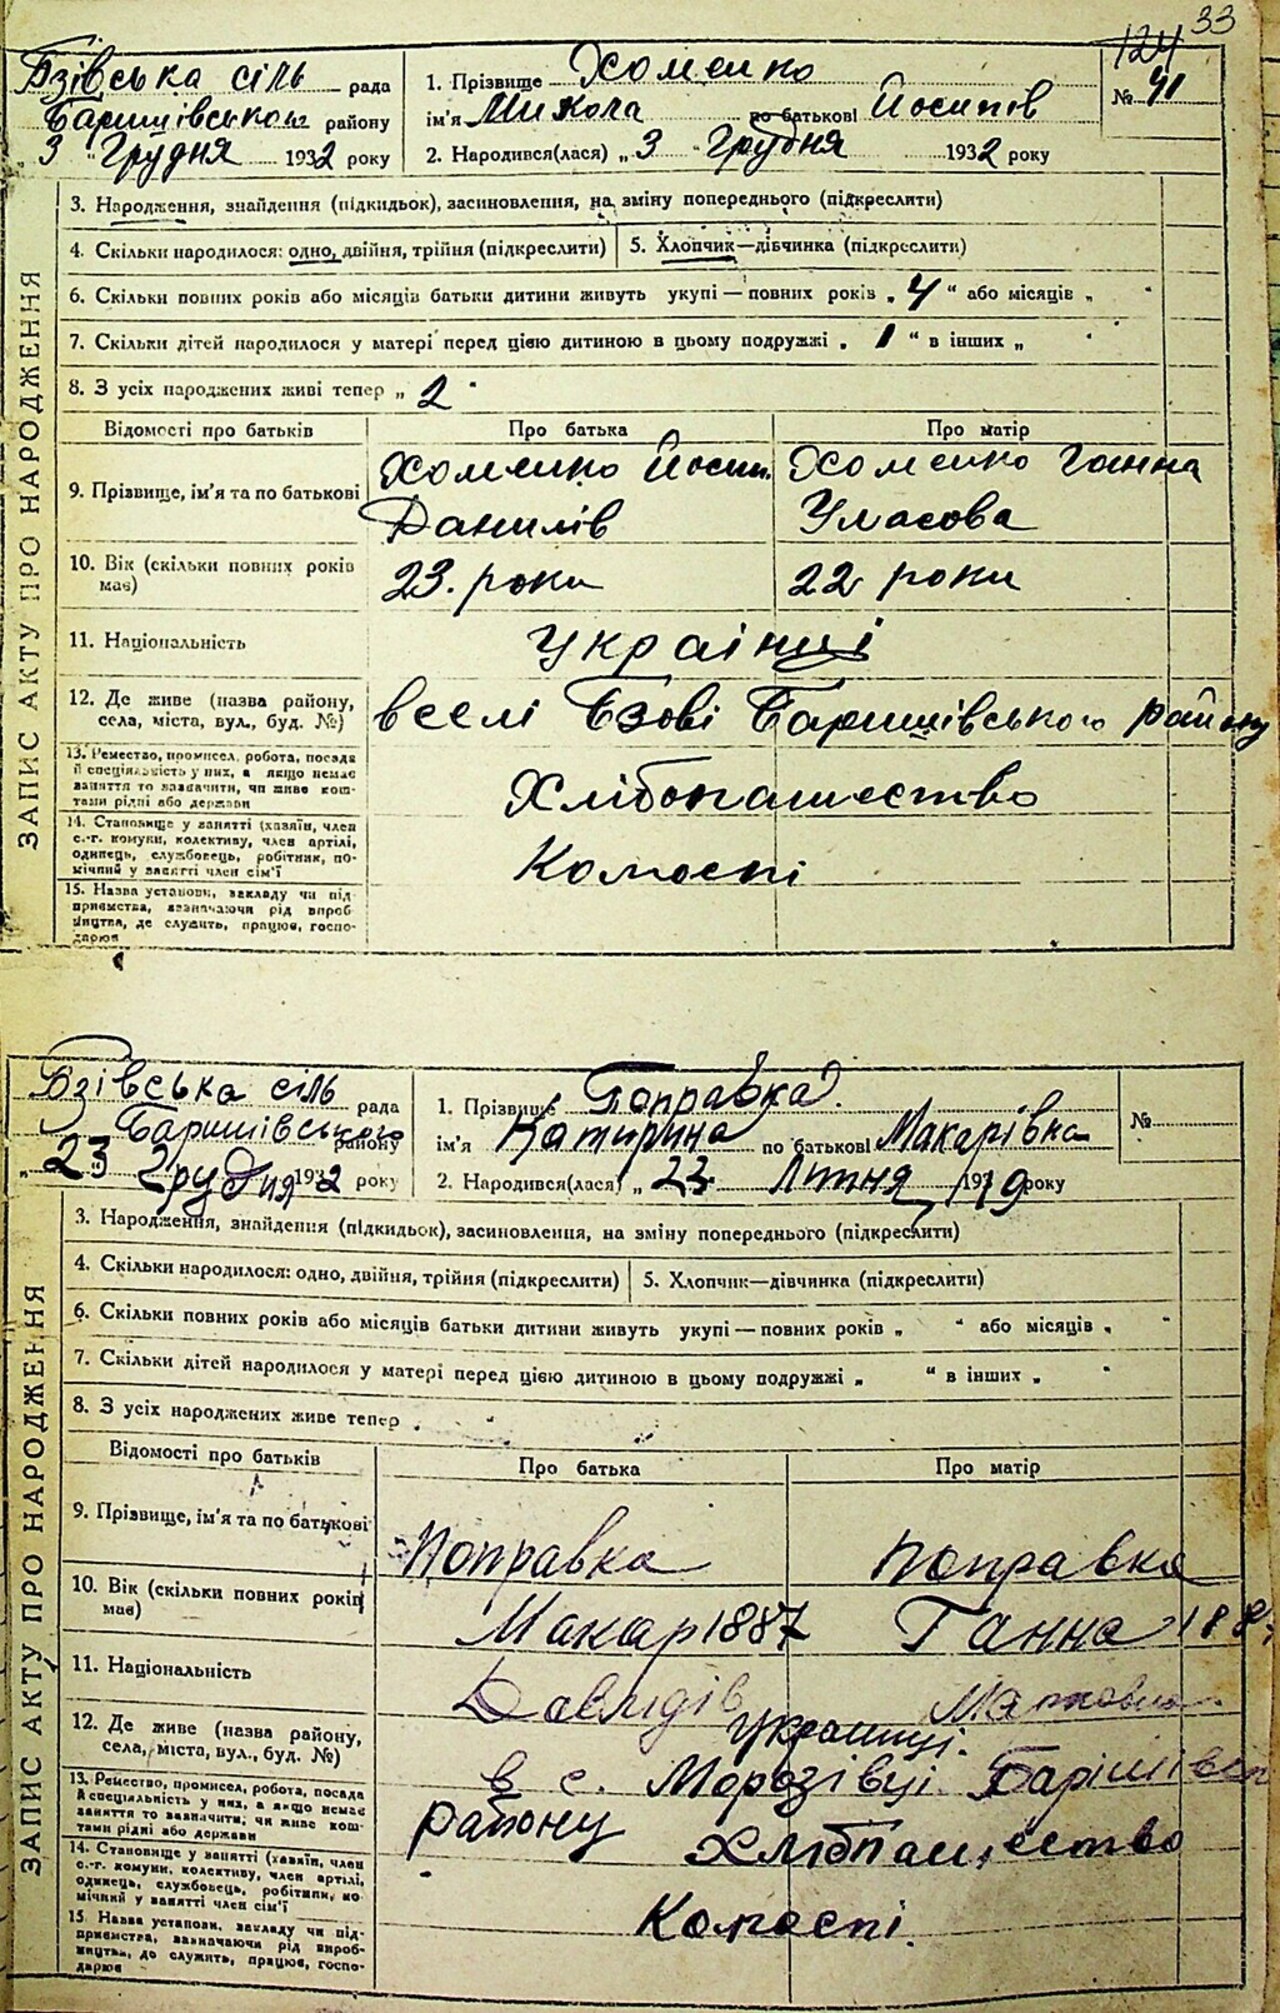 33
124
Бзівська сіль рада
Баришівського району
„ 3 " Грудня 1932 року
1. Прізвище Хоменко
ім'я Микола по батькові Йосипів
№ 41
2. Народився(лася) „ 3 " Грудня 1932 року
ЗАПИС АКТУ ПРО НАРОДЖЕННЯ
3. Народження, знайдення (підкидьок), засиновлення, на зміну попереднього (підкреслити)
4. Скільки народилося: одно, двійня, трійня (підкреслити)
5. Хлопчик—дівчинка (підкреслити)
6. Скільки повних років або місяців батьки дитини живуть укупі — повних років „ 4 " або місяців „ "
7. Скільки дітей народилося у матері перед цією дитиною в цьому подружжі „ 1 " в інших „ "
8. З усіх народжених живі тепер „ 2 "
Відомості про батьків Про батька Про матір
9. Прізвище, ім'я та по батькові
Хоменко Йосип.
Данилів
Хоменко Ганна
10. Вік (скільки повних років має)
23. роки
22 роки
11. Національність
Українці
12. Де живе (назва району,
села, міста, вул., буд. №)
вселі Бзові Баришівського району
13. Ремество, промисел, робота, посада
й спеціяльність у них, а якщо немає
заняття то зазначити, чи живе кош-
тами рідні або держави
Хлібопашество
14. Становище у занятті (хазяїн, член
с.-г. комуни, колективу, член артілі,
одинець, службовець, робітник, по-
мічний у занятті член сім'ї
15. Назва установи, закладу чи під-
приємства, зазначаючи рід вироб-
ництва, де служить, працює, госпо-
дарює
Бзівська сіль рада
Баришівського району
„ 23 " Грудня 1932 року
1. Прізвище Поправка
ім'я Катирина по батькові Макарівна
№
2. Народився(лася) „ 23 Лютня 1919 року
ЗАПИС АКТУ ПРО НАРОДЖЕННЯ
3. Народження, знайдення (підкидьок), засиновлення, на зміну попереднього (підкреслити)
4. Скільки народилося: одно, двійня, трійня (підкреслити)
5. Хлопчик—дівчинка (підкреслити)
6. Скільки повних років або місяців батьки дитини живуть укупі — повних років „ " або місяців „ "
7. Скільки дітей народилося у матері перед цією дитиною в цьому подружжі „ " в інших „ "
8. З усіх народжених живе тепер „ "
Відомості про батьків Про батька Про матір
9. Прізвище, ім'я та по батькові
Поправка
Поправка
10. Вік (скільки повних років має)
Макар 1887
Ганна
11. Національність
Давидів
Українці.
12. Де живе (назва району,
села, міста, вул., буд. №)
в с. Морозівці
району
13. Ремество, промисел, робота, посада
й спеціяльність у них, а якщо немає
заняття то зазначити, чи живе кош-
тами рідні або держави
Хлібпашество
14. Становище у занятті (хазяїн, член
с.-г. комуни, колективу, член артілі,
одинець, службовець, робітник, по-
мічний у занятті член сім'ї
15. Назва установи, закладу чи під-
приємства, зазначаючи рід вироб-
ництва, де служить, працює, госпо-
дарює